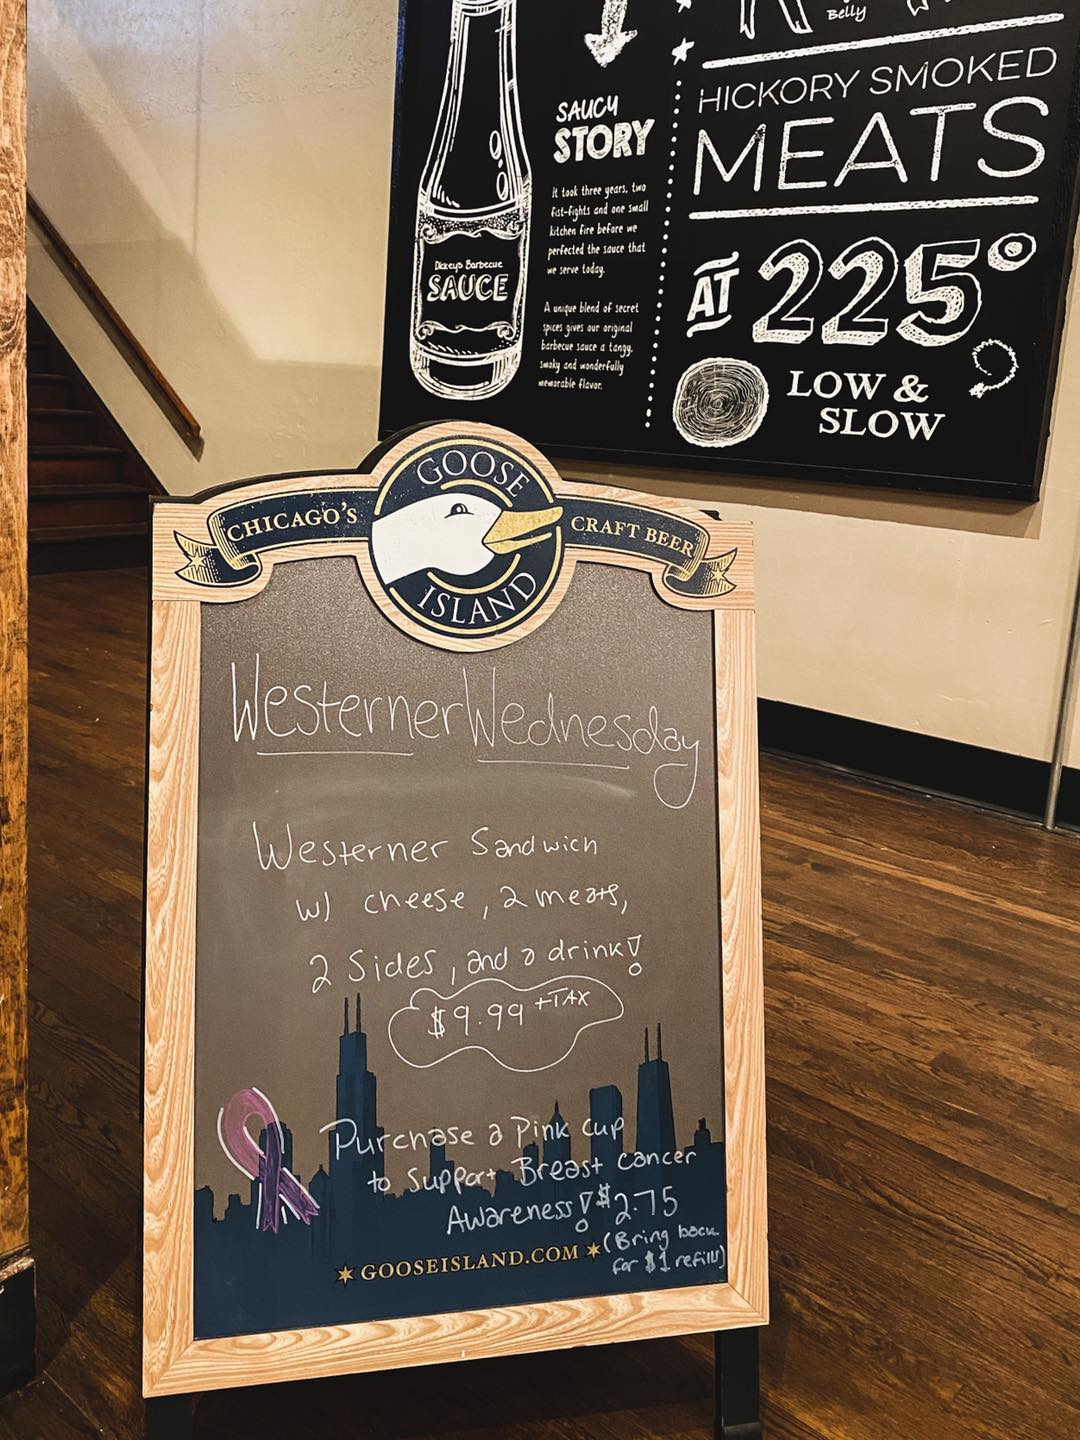 Belly
HICKORY SMOKED
MEATS
AT 225°
LOW &
SLOW
SAUCY
STORY
It took three years, two
fist-fights and one small
kitchen fire before we
perfected the sauce that
we serve today.
A unique blend of secret
spices gives our original
barbecue sauce a tangy,
smoky and wonderfully
memorable flavor.
Dickeys Barbecue
SAUCE
GOOSE
CHICAGO'S
CRAFT BEER
ISLAND
Westerner Wednesday
Westerner Sandwich
w/ cheese, 2 meats,
2 Sides, and a drink!
$9.99 +TAX
Purchase a Pink cup
to Support Breast cancer
Awareness! $2.75
(Bring back
for $1 refills)
GOOSEISLAND.COM